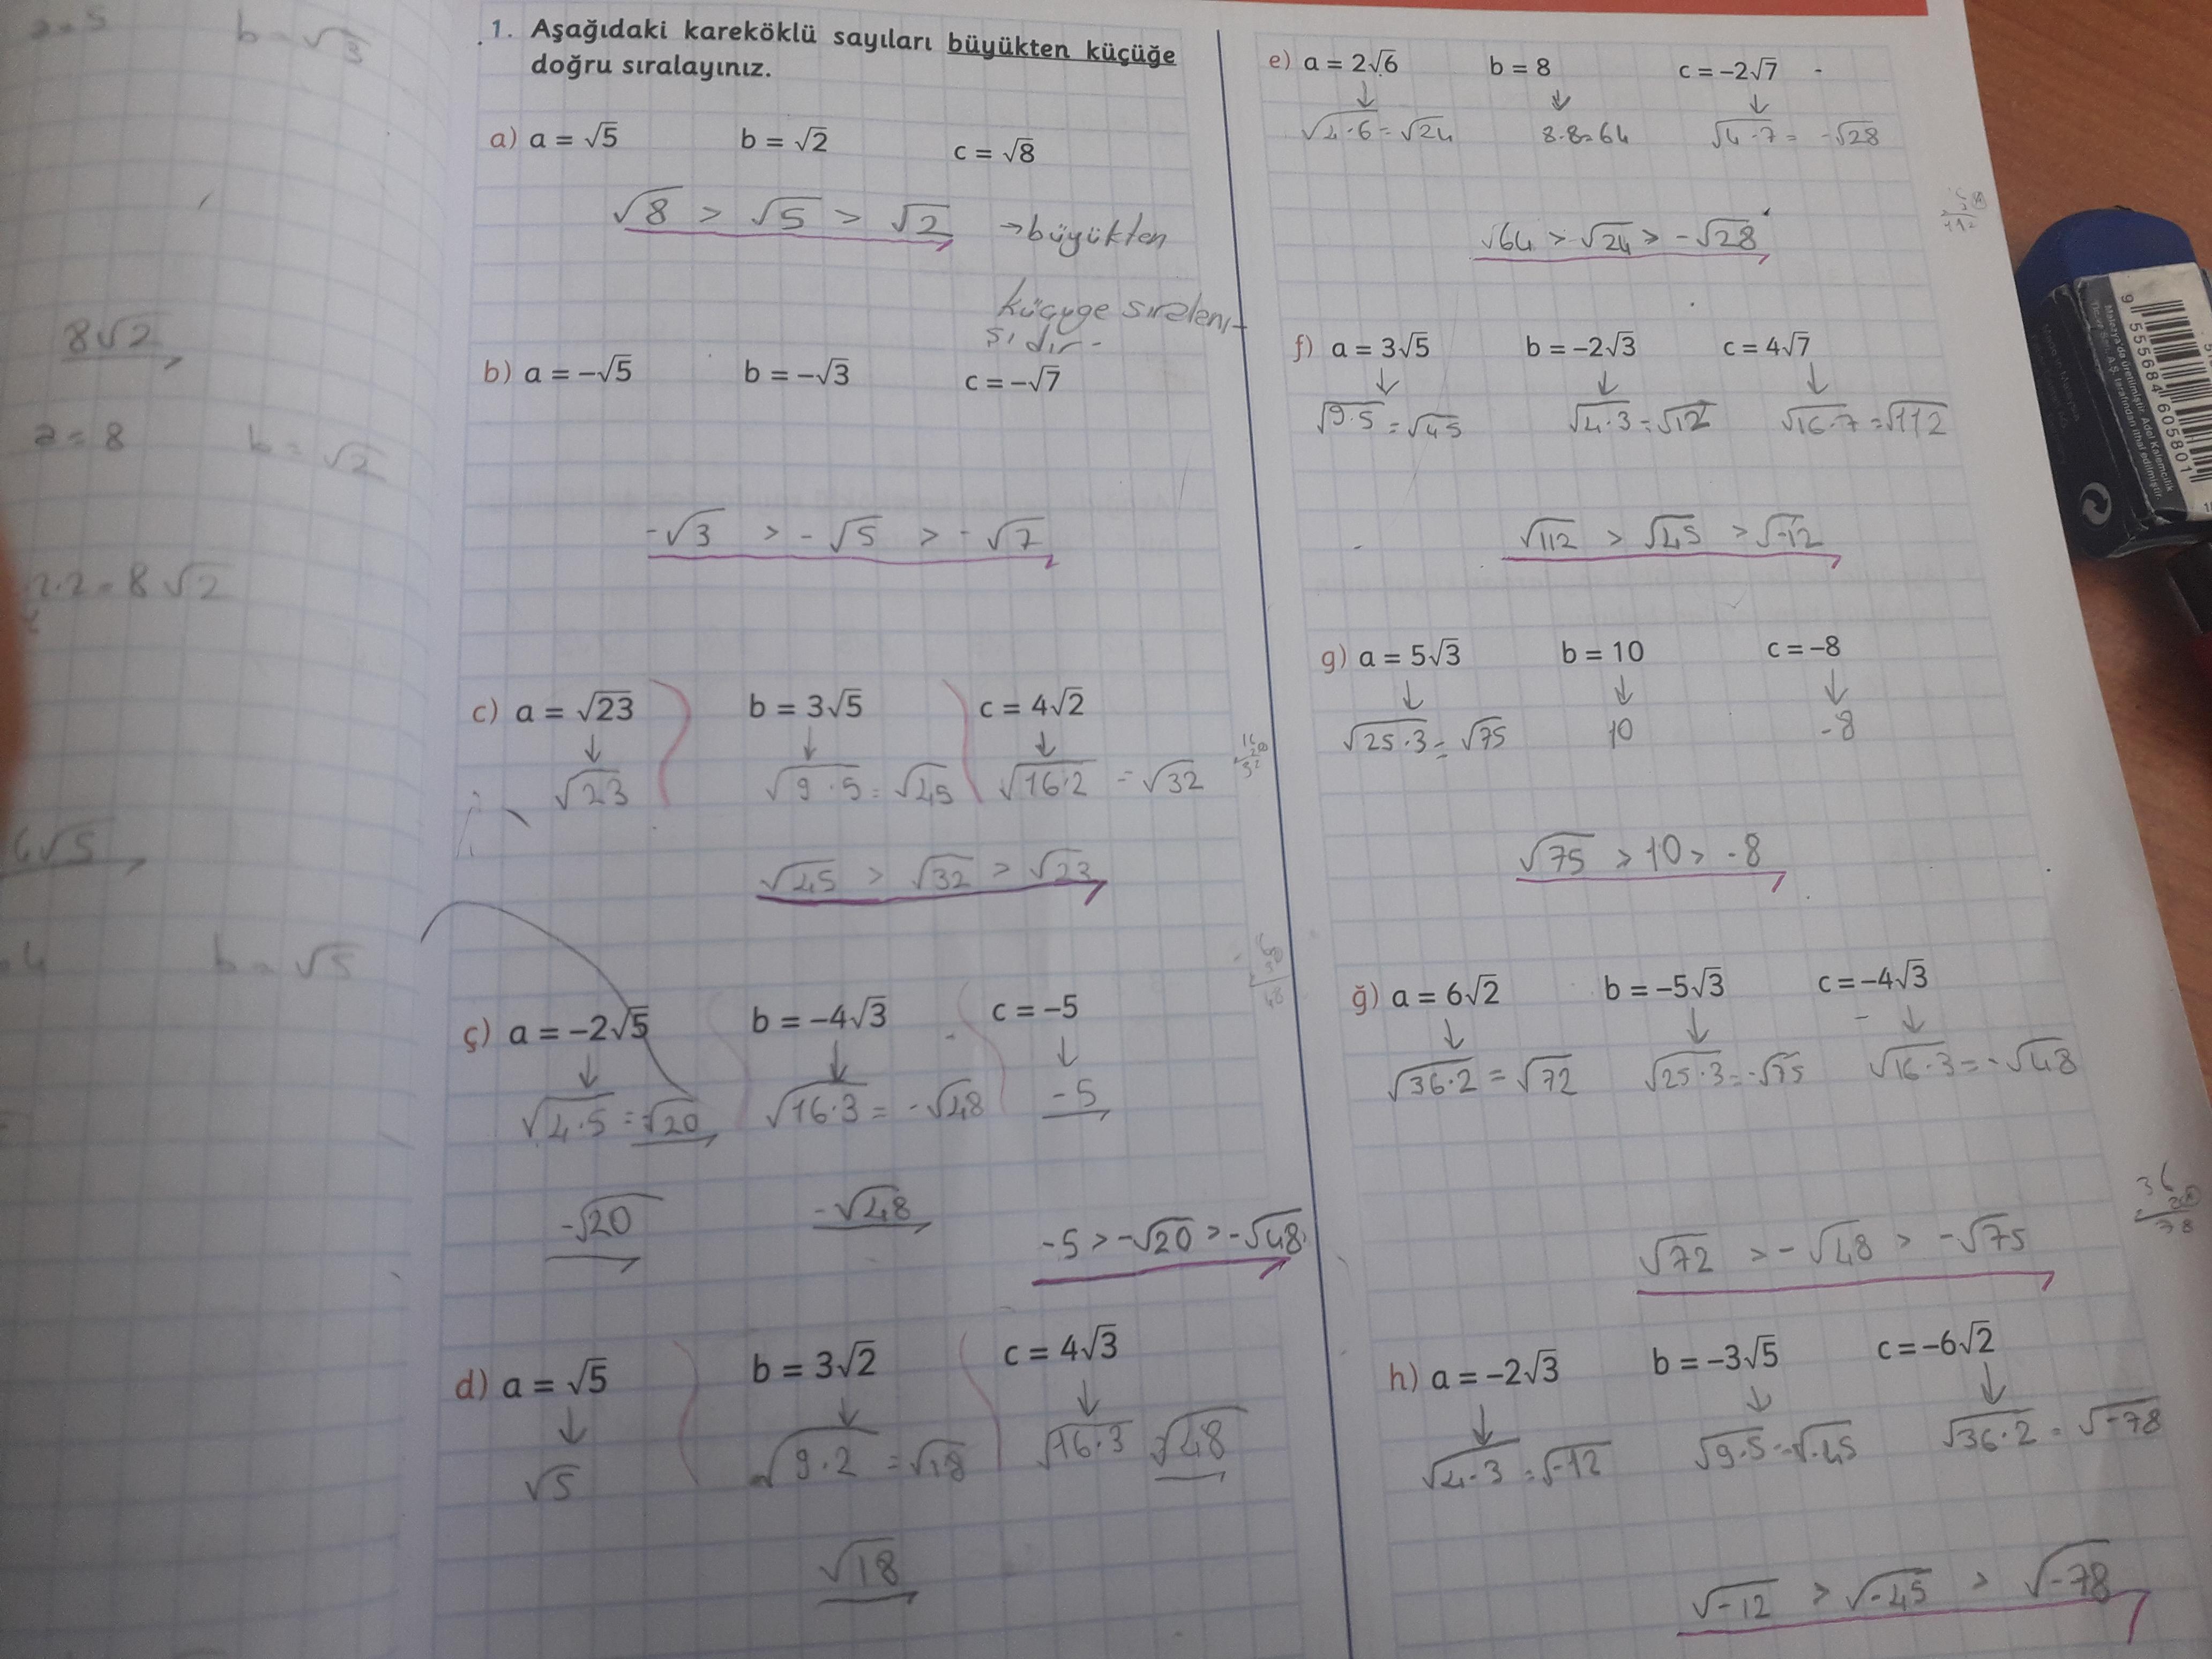 a = 5 b = √3
8√2
a = 8 b = √2
2.2 = 8√2
6√5
b = √5
1. Aşağıdaki kareköklü sayıları büyükten küçüğe
doğru sıralayınız.
a) a = √5 b = √2 c = √8
√8 > √5 > √2 → büyükten
küçüge sıralanı-
şıdır.
b) a = -√5 b = -√3 c = -√7
-√3 > -√5 > -√7
c) a = √23 b = 3√5 c = 4√2
√23 √9.5 = √45 √16.2 = √32
√45 > √32 > √23
ç) a = -2√5 b = -4√3 c = -5
√4.5 = √20 √16.3 = -√48 -5
-√20 -√48
-5 > -√20 > -√48
d) a = √5 b = 3√2 c = 4√3
√5 √9.2 = √18 √16.3 = √48
√18
e) a = 2√6 b = 8 c = -2√7
√4.6 = √24 8.8=64 √4.7 = -√28
√64 > √24 > -√28
f) a = 3√5 b = -2√3 c = 4√7
√9.5 = √45 √4.3 = √12 √16.7 = √112
√112 > √45 > √-12
g) a = 5√3 b = 10 c = -8
√25.3 = √75 10 -8
√75 > 10 > -8
ğ) a = 6√2 b = -5√3 c = -4√3
√36.2 = √72 √25.3 = -√75 √16.3 = -√48
√72 > -√48 > -√75
h) a = -2√3 b = -3√5 c = -6√2
√4.3 = √-12 √9.5 = √-45 √36.2 = √-78
√-12 > √-45 > √-78
9 555684 605801